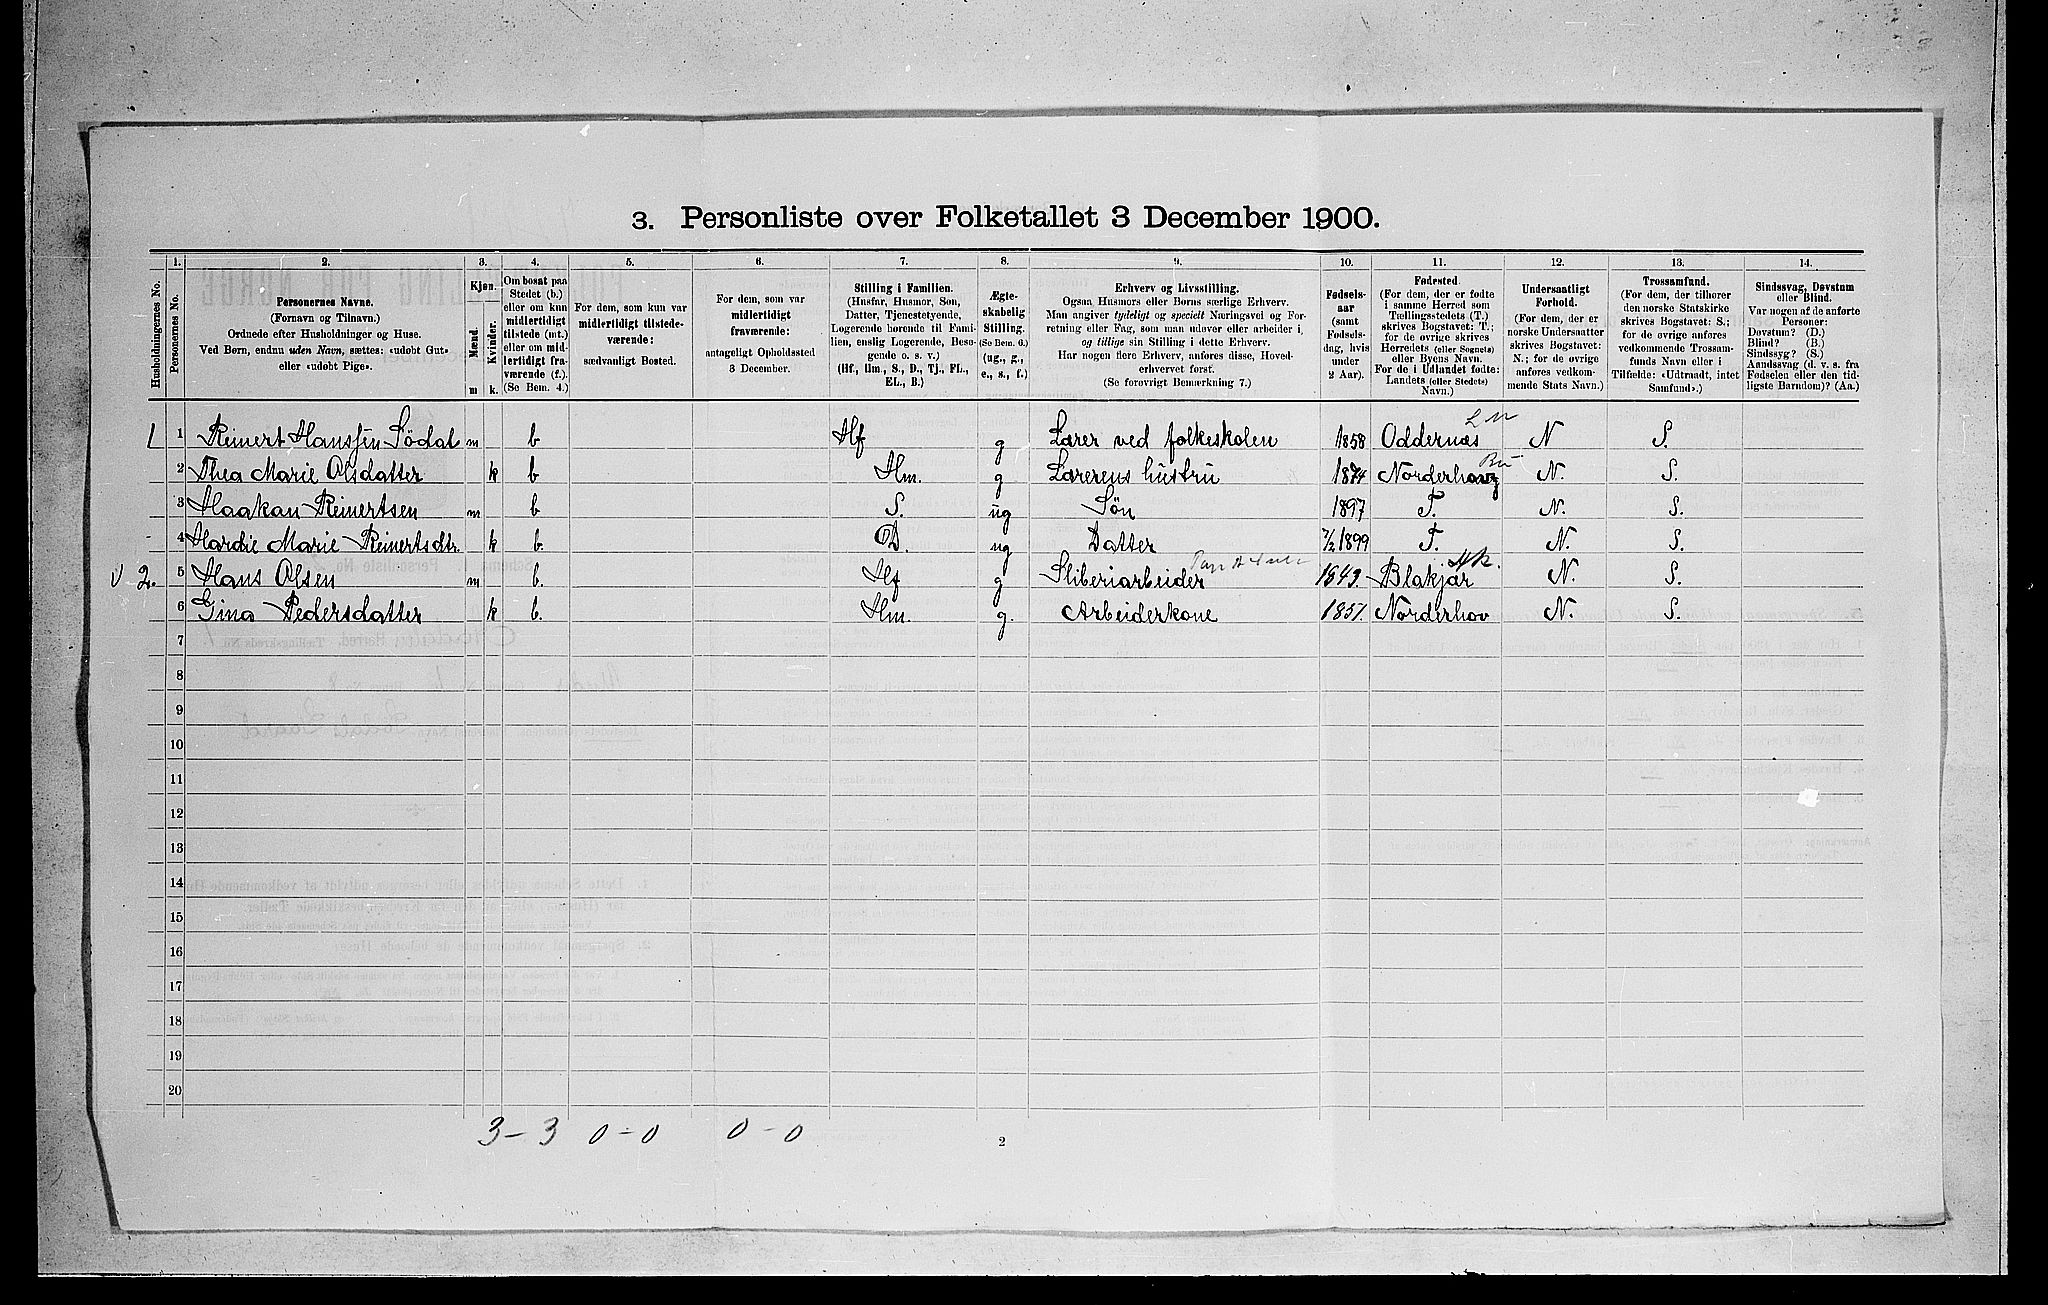 3. Personliste over Folketallet 3 December 1900.
1. 2. 3. 4. 5. 6. 7. 8. 9. 10. 11. 12. 13. 14.
Husholdningernes No.
Personernes No.
Personernes Navne.
(Fornavn og Tilnavn.)
Ordnede efter Husholdninger og Huse.
Ved Børn, endnu uden Navn, sættes: «udøbt Gut»
eller «udøbt Pige».
Kjøn.
Mænd.
Kvinder.
m k.
Om bosat paa
Stedet (b.)
eller om kun
midlertidigt
tilstede (mt.)
eller om mid-
lertidigt fra-
værende (f.).
(Se Bem. 4.)
For dem, som kun var
midlertidigt tilstede-
værende:
sædvanligt Bosted.
For dem, som var
midlertidigt
fraværende:
antageligt Opholdssted
3 December.
Stilling i Familien.
(Husfar, Husmor, Søn,
Datter, Tjenestetyende,
Logerende hørende til Fami-
lien, enslig Logerende, Besø-
gende o. s. v.)
(Hf, Hm., S., D., Tj., FL.,
EL., B.)
Ægte-
skabelig
Stilling.
(Se Bem. 6.)
(ug., g.,
e., s., f.)
Erhverv og Livsstilling.
Ogsaa Husmors eller Børns særlige Erhverv.
Man angiver tydeligt og specielt Næringsvei og For-
retning eller Fag, som man udøver eller arbeider i,
og tillige sin Stilling i dette Erhverv.
Har nogen flere Erhverv, anføres disse, Hoved-
erhvervet først.
(Se forøvrigt Bemærkning 7.)
Fødsels-
aar
(samt
Fødsels-
dag, hvis
under
2 Aar).
Fødested.
(For dem, der er fødte
i samme Herred som
Tællingsstedets (T.)
skrives Bogstavet: T.;
for de øvrige skrives
Herredets (eller Sognets)
eller Byens Navn.
For de i Udlandet fødte:
Landets (eller Stedets)
Navn.)
Undersaatligt
Forhold.
(For dem, der er
norske Undersaatter
skrives Bogstavet:
N.; for de øvrige
anføres vedkom-
mende Stats Navn.)
Trossamfund.
(For dem, der tilhører
den norske Statskirke
skrives Bogstavet: S.;
for de øvrige anføres
vedkommende Trossam-
funds Navn eller i
Tilfælde: «Udtraadt, intet
Samfund».)
Sindssvag, Døvstum
eller Blind.
Var nogen af de anførte
Personer:
Døvstum? (D.)
Blind? (B.)
Sindssyg? (S.)
Aandssvag (d. v. s. fra
Fødselen eller den tid-
ligste Barndom)? (Aa.)
1 1 Reinert Hanssen Södal m b Hf g Lærer ved folkeskolen 1858 Oddernæs N S.
2 Thea Marie Olsdatter k b Hm. g Lærerens hustru 1874 Norderhov N. S.
3 Haakan Reinertsen m b S. ug Søn 1897 T. N. S.
4 Hardie Marie Reinertsdtr. k b. D. ug Datter 7/2 1899 T. N. S.
V 2. 5 Hans Olsen m b. Hf g Sliberiarbeider 1843. Blakjar Ak. N. S.
6 Gina Pedersdatter k b. Hm. g. Arbeiderkone 1857. Norderhov N. S.
7
8
9
10
11
12
13
14
15
16
17
18
19
20
3 – 3 0 – 0 0 – 0
2